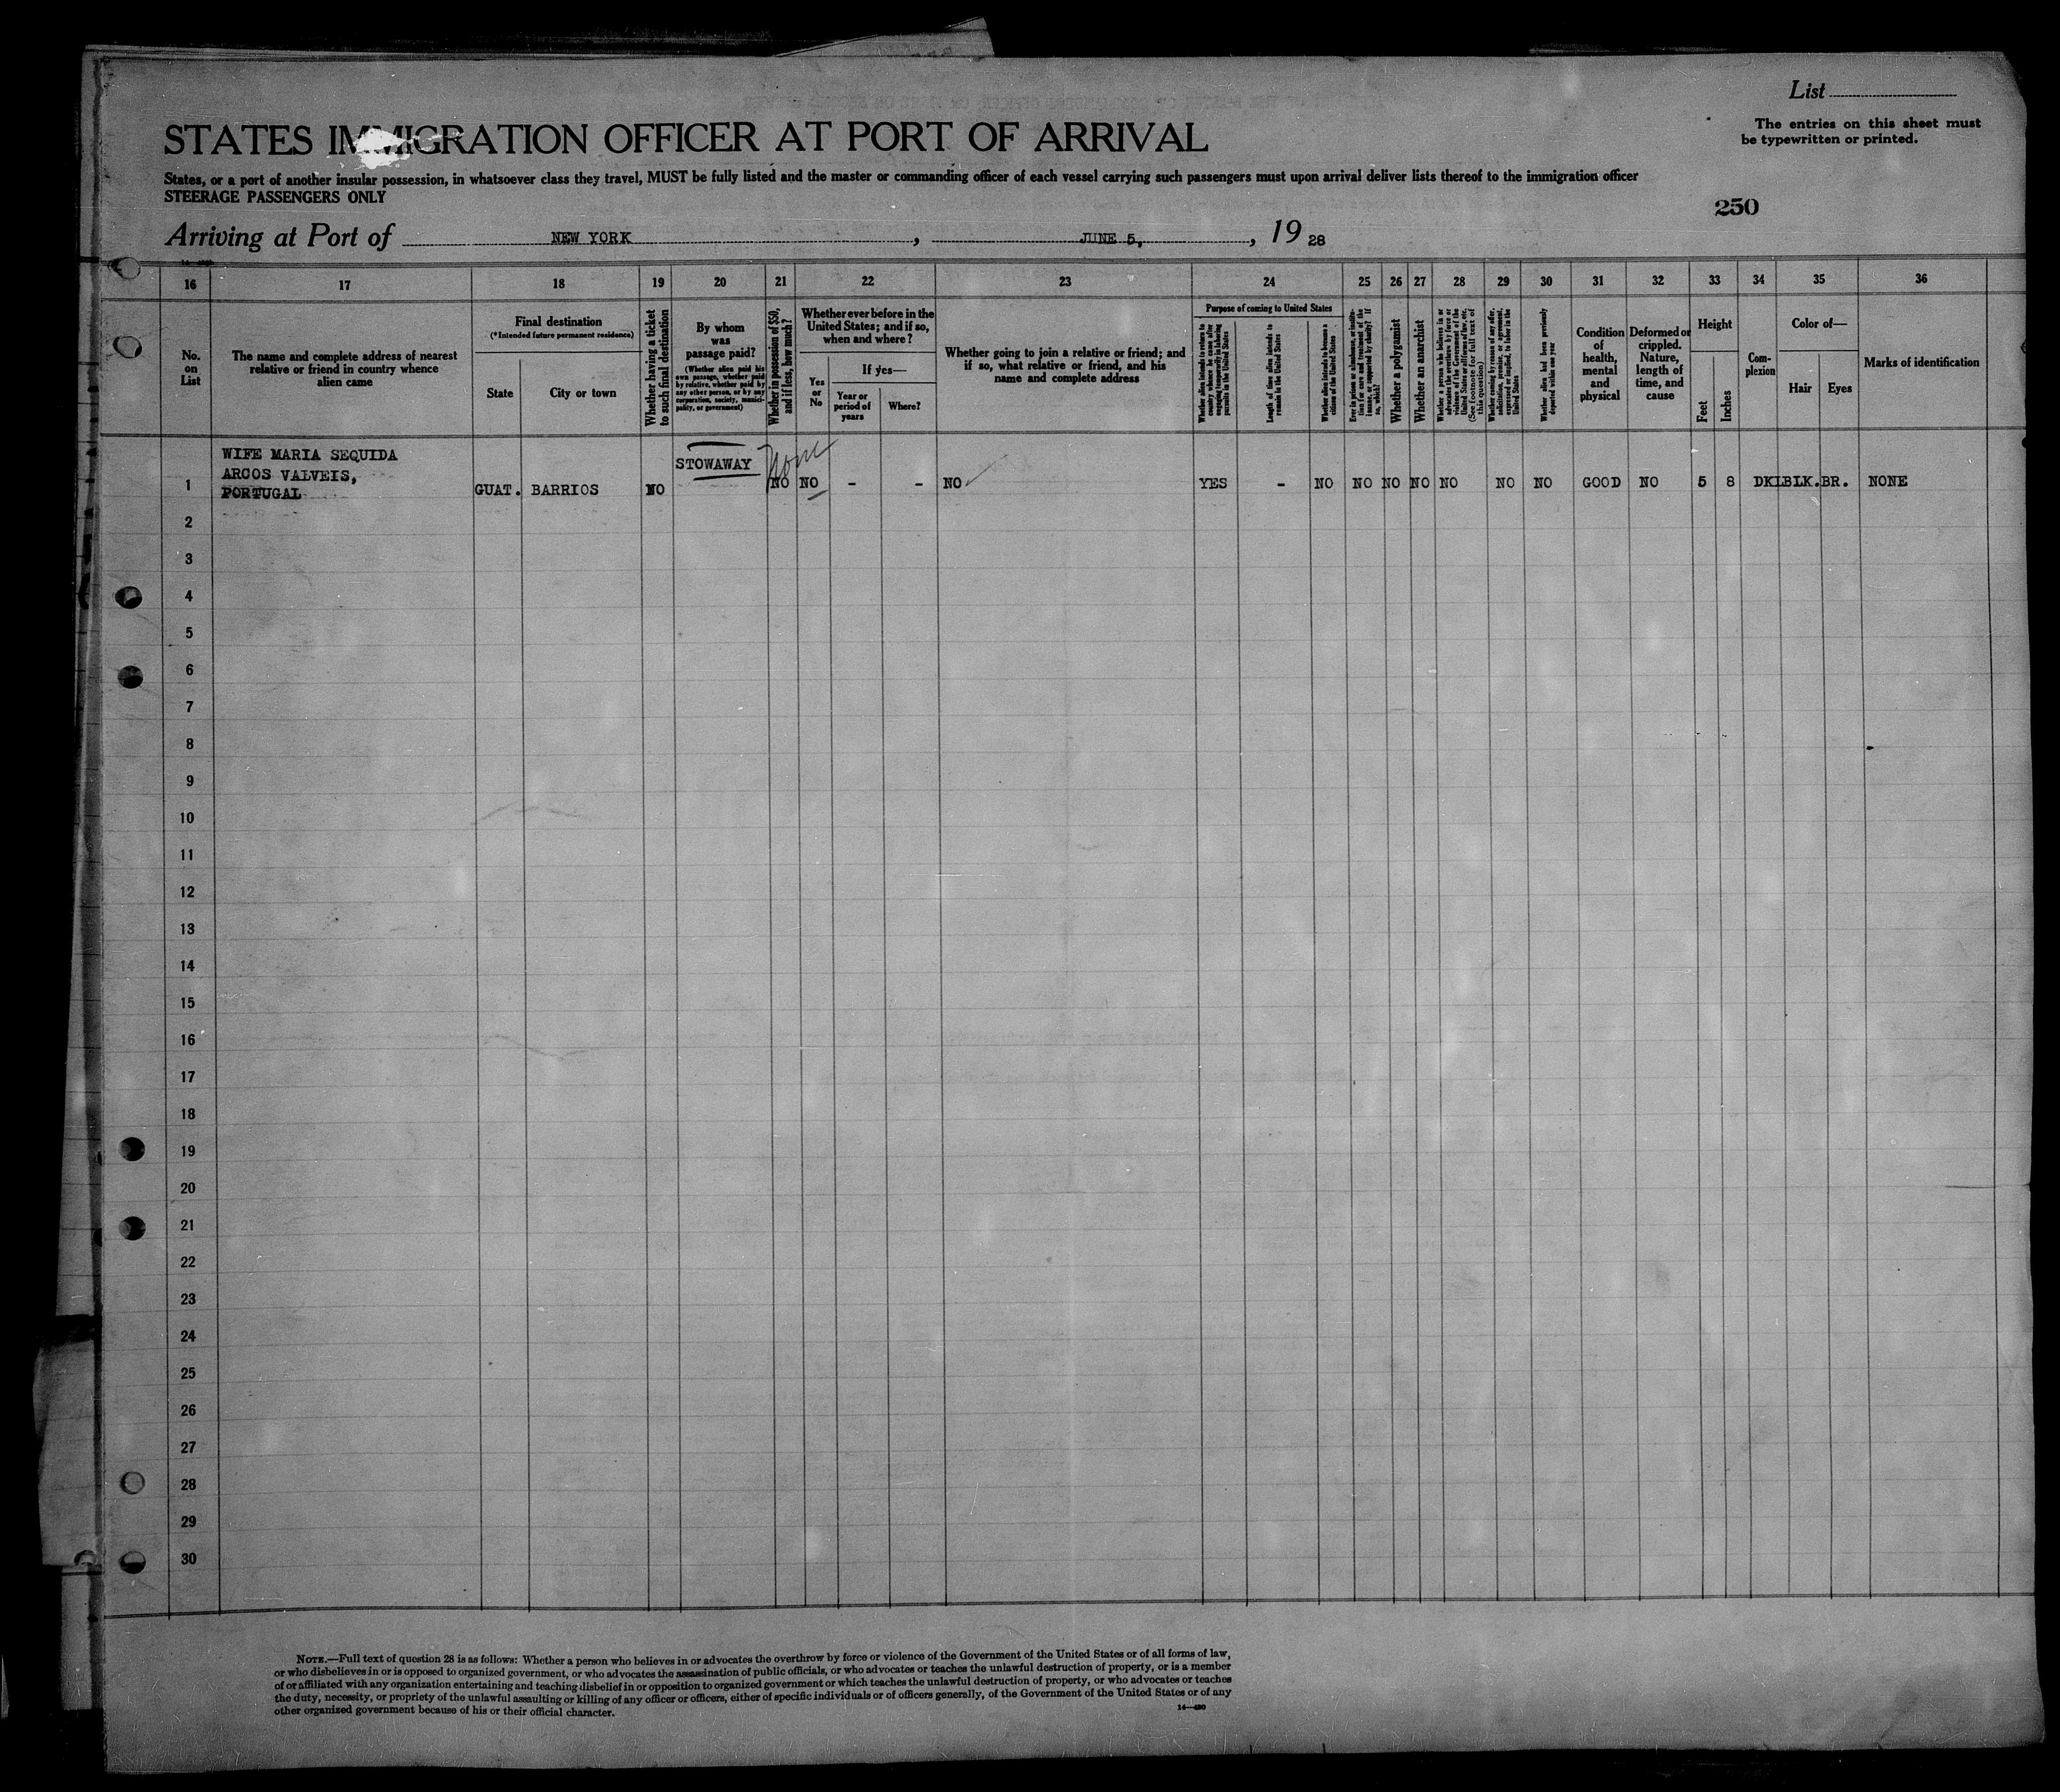 List
The entries on this sheet must
be typewritten or printed.
STATES IMMIGRATION OFFICER AT PORT OF ARRIVAL
States, or a port of another insular possession, in whatsoever class they travel, MUST be fully listed and the master or commanding officer of each vessel carrying such passengers must upon arrival deliver lists thereof to the immigration officer
STEERAGE PASSENGERS ONLY
250
Arriving at Port of NEW YORK, JUNE 5, 1928
16 17 18 19 20 21 22 23 24 25 26 27 28 29 30 31 32 33 34 35 36
No.
on
List
The name and complete address of nearest
relative or friend in country whence
alien came
Final destination
(*Intended future permanent residence)
State
City or town
Whether having a ticket
to such final destination
By whom
was
passage paid?
(Whether alien paid his
own passage, whether paid
by relative, whether paid by
any other person, or by any
corporation, society, munici-
pality, or government)
Whether in possession of $50,
and if less, how much?
Whether ever before in the
United States; and if so,
when and where?
Yes
or
No
If yes—
Year or
period of
years
Where?
Whether going to join a relative or friend; and
if so, what relative or friend, and his
name and complete address
Purpose of coming to United States
Whether alien intends to return to
country whence he came after
engaging temporarily in laboring
pursuits in the United States
Length of time alien intends to
remain in the United States
Whether alien intends to become a
citizen of the United States
Ever in prison or almshouse, or institu-
tion for care and treatment of the
insane, or supported by charity? If
so, which?
Whether a polygamist
Whether an anarchist
Whether a person who believes in or
advocates the overthrow by force or
violence of the Government of the
United States or all forms of law, etc.
(See footnote for full text of
this question)
Whether coming by reason of any offer,
solicitation, promise, or agreement,
expressed or implied, to labor in the
United States
Whether alien had been previously
deported within one year
Condition
of
health,
mental
and
physical
Deformed or
crippled.
Nature,
length of
time, and
cause
Height
Feet
Inches
Com-
plexion
Color of—
Hair
Eyes
Marks of identification
WIFE MARIA SEQUIDA
ARCOS VALVEIS,
PORTUGAL
1 GUAT. BARRIOS NO STOWAWAY None NO NO - - NO YES - NO NO NO NO NO NO NO GOOD NO 5 8 DK BLK. BR. NONE
2
3
4
5
6
7
8
9
10
11
12
13
14
15
16
17
18
19
20
21
22
23
24
25
26
27
28
29
30
NOTE.—Full text of question 28 is as follows: Whether a person who believes in or advocates the overthrow by force or violence of the Government of the United States or of all forms of law,
or who disbelieves in or is opposed to organized government, or who advocates the assassination of public officials, or who advocates or teaches the unlawful destruction of property, or is a member
of or affiliated with any organization entertaining and teaching disbelief in or opposition to organized government or which teaches the unlawful destruction of property, or who advocates or teaches
the duty, necessity, or propriety of the unlawful assaulting or killing of any officer or officers, either of specific individuals or of officers generally, of the Government of the United States or of any
other organized government because of his or their official character.
14—430